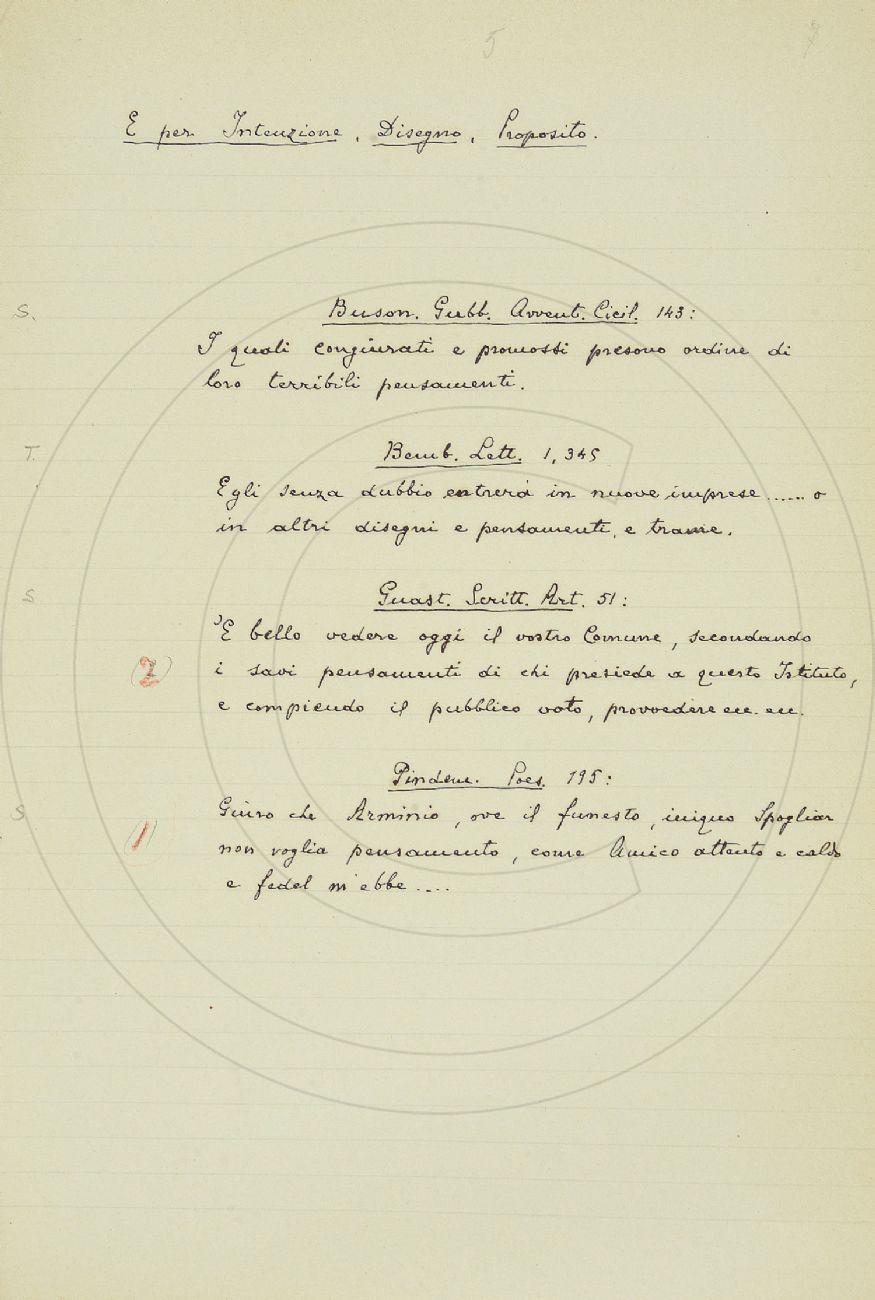 5
E per Intenzione, Disegno, Proposito.
S. Buson. Gubb. Avvent. Cicil. 143:
I quali congiurati e promossi presono ordine di
loro terribili pensamenti.
T. Bemb. Lett. 1, 345
Egli senza dubbio entrerà in nuove imprese...... o
in altri disegni e pensamenti, e trame.
S Guast. Scritt. Art. 51:
È bello vedere oggi il vostro Comune, secondando
(2) i savi pensamenti di chi presiede a questo Istituto,
e compiendo il pubblico voto, provvedere ec. ec.
Pindem. Poes. 195:
S Giuro che Arminio, ove il funesto, iniquo Spogliar
(1) non voglia pensamento, come Amico attento e caldo
e fedel m'ebbe....